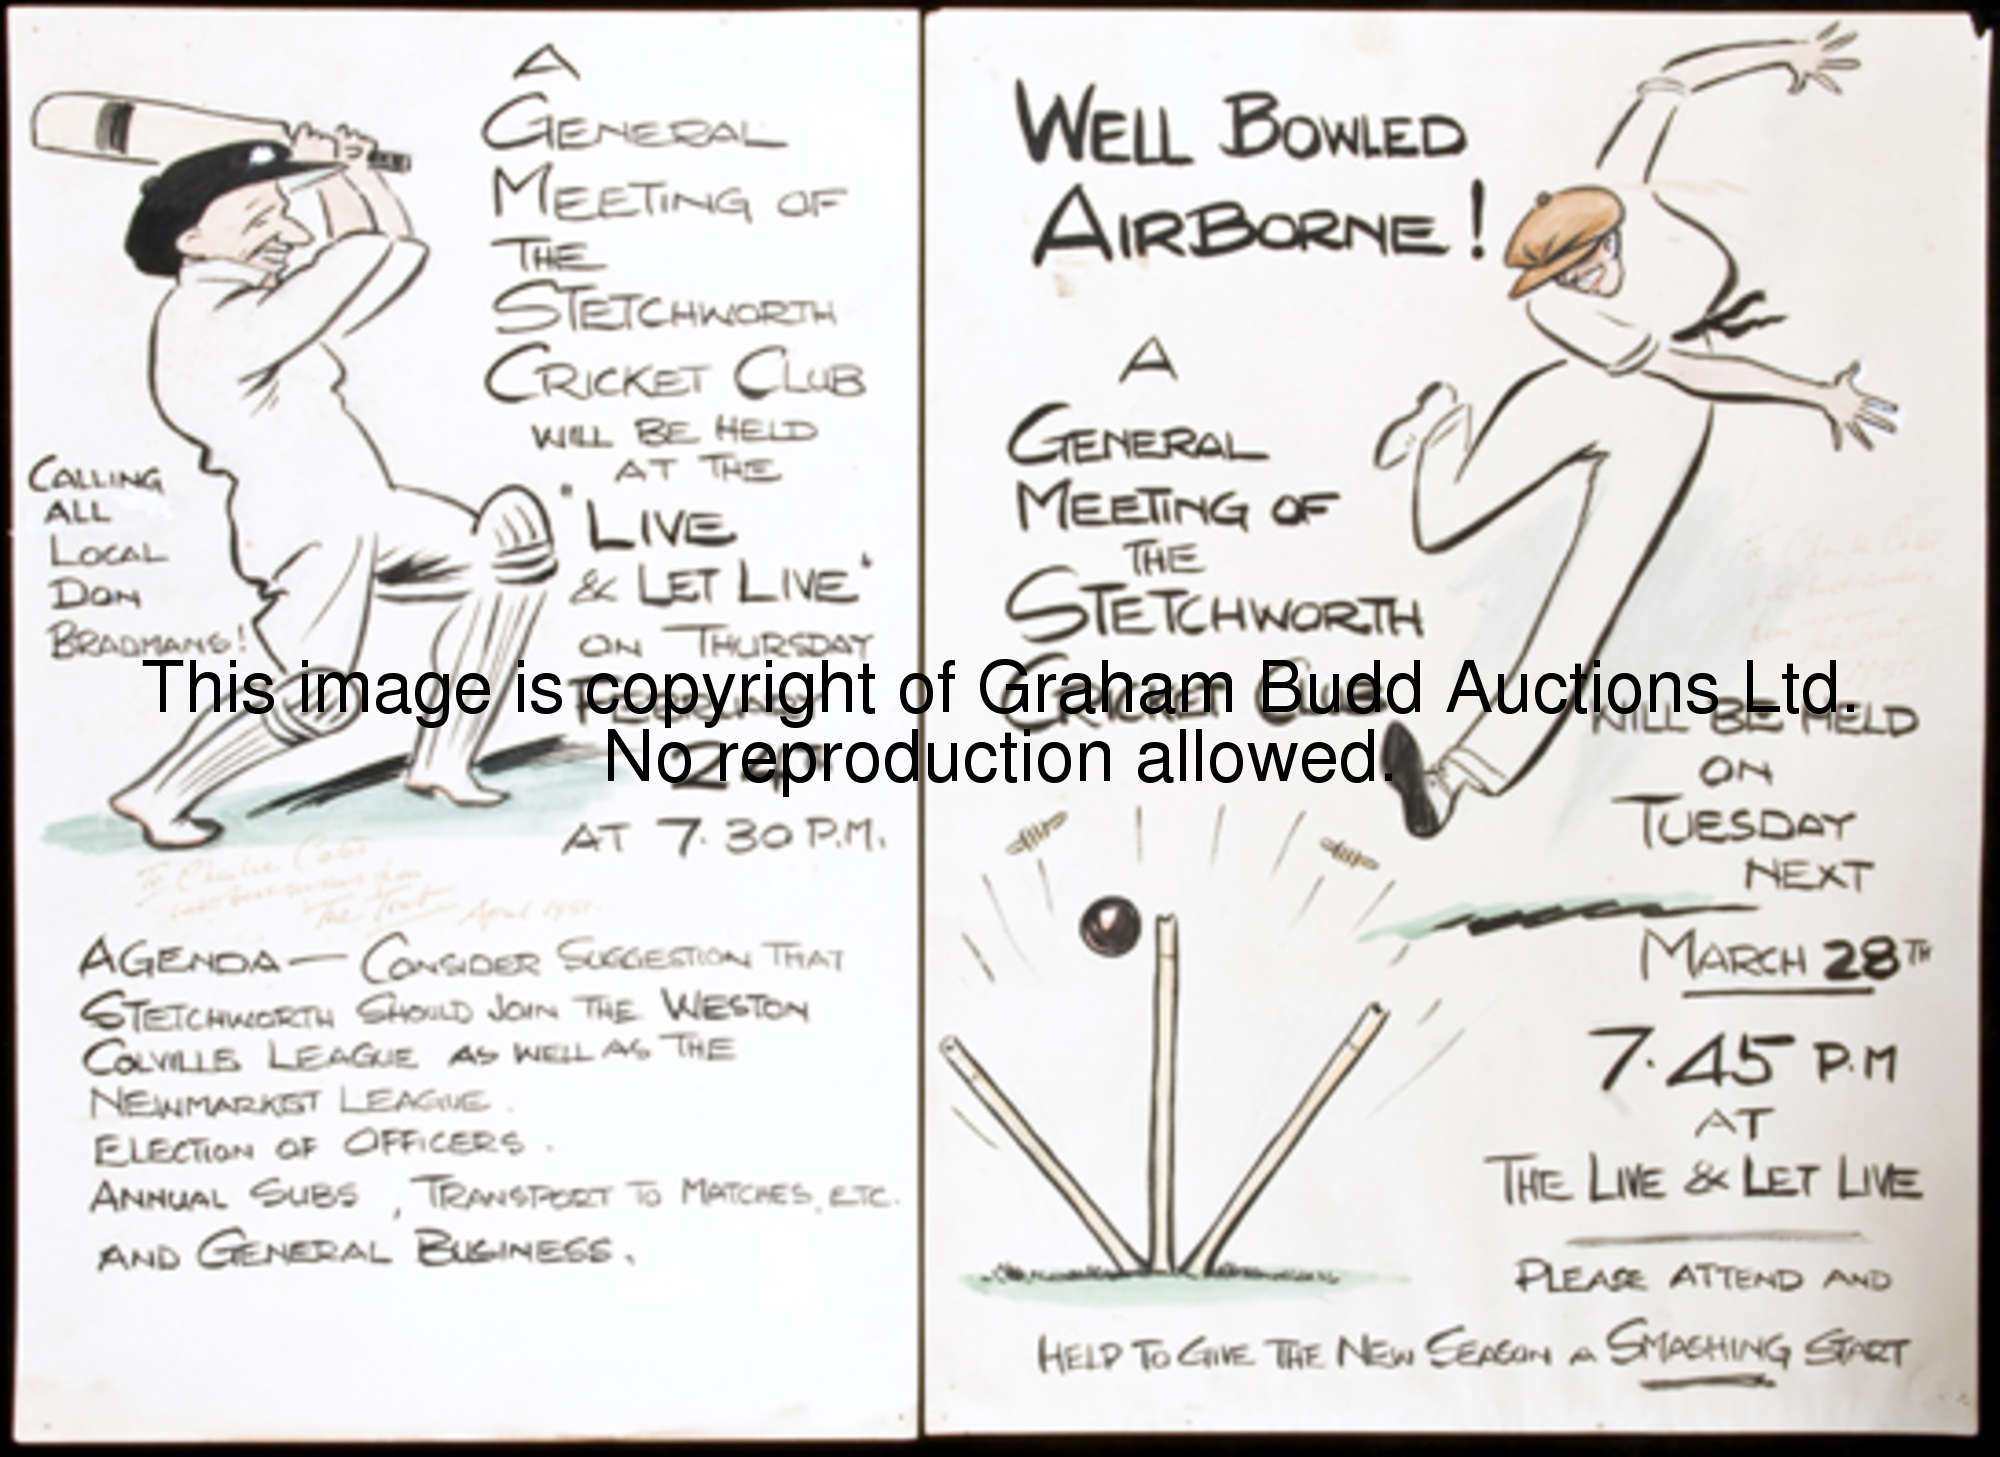 A
GENERAL
MEETING OF
THE
STETCHWORTH
CRICKET CLUB
WILL BE HELD
AT THE
"LIVE
& LET LIVE"
ON THURSDAY
24TH
AT 7.30 P.M.
CALLING
ALL
LOCAL
DON
BRADMANS!
To Charlie
April 1951.
AGENDA — CONSIDER SUGGESTION THAT
STETCHWORTH SHOULD JOIN THE WESTON
COLVILLE LEAGUE AS WELL AS THE
NEWMARKET LEAGUE.
ELECTION OF OFFICERS.
ANNUAL SUBS, TRANSPORT TO MATCHES, ETC.
AND GENERAL BUSINESS.
WELL BOWLED
AIRBORNE!
A
GENERAL
MEETING OF
THE
STETCHWORTH
CRICKET CLUB
WILL BE HELD
ON
TUESDAY
NEXT
MARCH 28TH
7.45 P.M
AT
THE LIVE & LET LIVE
PLEASE ATTEND AND
HELP TO GIVE THE NEW SEASON A SMASHING START
This image is copyright of Graham Budd Auctions Ltd.
No reproduction allowed.